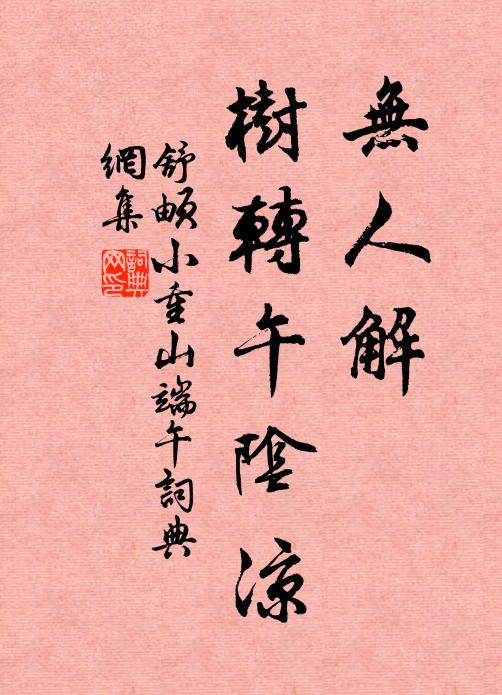 無人解
樹轉午陰涼
舒頔小重山端午詞典
網集
詞典
网印